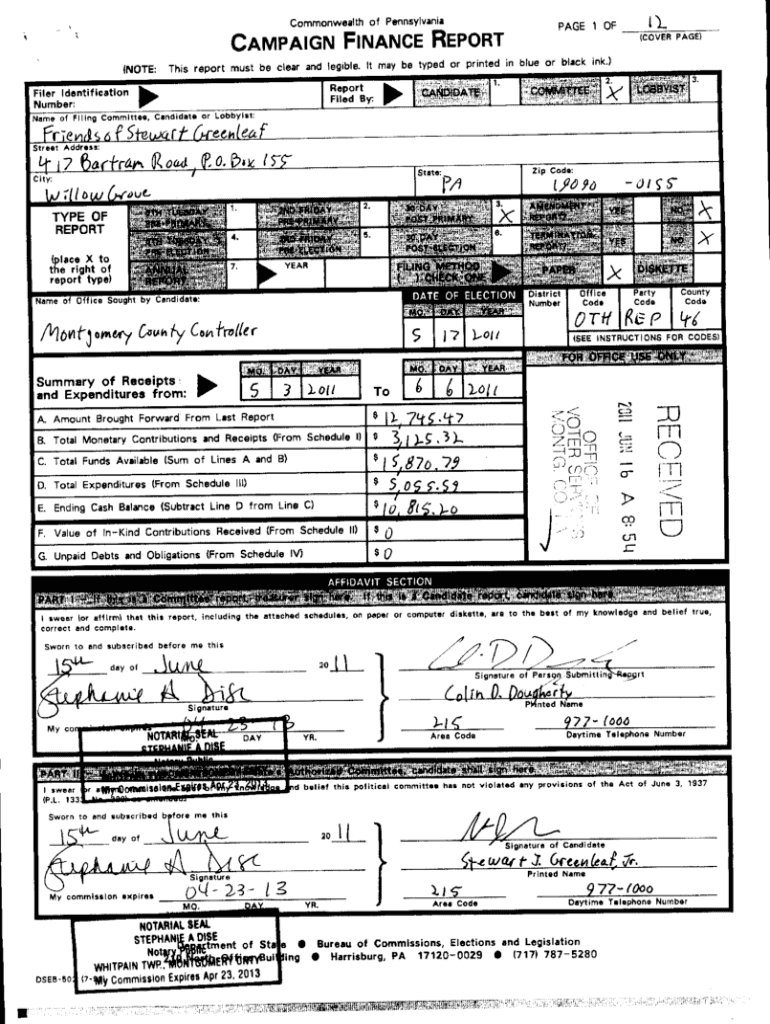 Commonwealth of Pennsylvania
PAGE 1 OF 12
CAMPAIGN FINANCE REPORT
(COVER PAGE)
(NOTE: This report must be clear and legible. It may be typed or printed in blue or black ink.)
Filer Identification Number:
Report Filed By:
CANDIDATE 1.
COMMITTEE 2. X
LOBBYIST 3.
Name of Filing Committee, Candidate or Lobbyist:
Friends of Stewart Greenleaf
Street Address:
417 Bartram Road, P.O. Box 155
City: Willow Grove
State: PA
Zip Code: 19090 -0155
TYPE OF REPORT
(place X to the right of report type)
6TH TUESDAY PRE-PRIMARY 1.
2ND FRIDAY PRE-PRIMARY 2.
30 DAY POST PRIMARY 3. X
AMENDMENT REPORT? YES NO X
6TH TUESDAY PRE-ELECTION 4.
2ND FRIDAY PRE-ELECTION 5.
30 DAY POST-ELECTION 6.
TERMINATION REPORT? YES NO X
ANNUAL REPORT 7.
YEAR
FILING METHOD ( ) CHECK ONE
PAPER X
DISKETTE
Name of Office Sought by Candidate:
Montgomery County Controller
DATE OF ELECTION
MO. DAY YEAR
5 17 2011
District Number
Office Code OTH
Party Code REP
County Code 46
(SEE INSTRUCTIONS FOR CODES)
FOR OFFICE USE ONLY
Summary of Receipts and Expenditures from:
MO. DAY YEAR
5 3 2011
To
MO. DAY YEAR
6 6 2011
A. Amount Brought Forward From Last Report $ 12,745.47
B. Total Monetary Contributions and Receipts (From Schedule I) $ 3,125.32
C. Total Funds Available (Sum of Lines A and B) $ 15,870.79
D. Total Expenditures (From Schedule III) $ 5,055.59
E. Ending Cash Balance (Subtract Line D from Line C) $ 10,815.20
F. Value of In-Kind Contributions Received (From Schedule II) $ 0
G. Unpaid Debts and Obligations (From Schedule IV) $ 0
RECEIVED
2011 JUN 16 A 8:54
OFFICE OF
VOTER SERVICES
MONTG CO PA
AFFIDAVIT SECTION
PART I - If this is a Committee report, treasurer sign here. If this is a Candidate report, candidate sign here.
I swear (or affirm) that this report, including the attached schedules, on paper or computer diskette, are to the best of my knowledge and belief true,
correct and complete.
Sworn to and subscribed before me this
15th day of June 2011
Signature of Person Submitting Report
Stephanie A Dise
Signature
Colin D. Dougherty
Printed Name
My commission expires 04-23-13
MO. DAY YR.
215 977-1000
Area Code Daytime Telephone Number
NOTARIAL SEAL
STEPHANIE A DISE
Notary Public
My Commission Expires Apr 23, 2013
PART II
Authorized Committee, candidate shall sign here.
I swear (or affirm) that to the best of my knowledge and belief this political committee has not violated any provisions of the Act of June 3, 1937
(P.L. 1333, No. 320) as amended.
Sworn to and subscribed before me this
15th day of June 2011
Signature of Candidate
Stephanie A Dise
Signature
Stewart J. Greenleaf, Jr.
Printed Name
My commission expires 04-23-13
MO. DAY YR.
215 977-1000
Area Code Daytime Telephone Number
NOTARIAL SEAL
STEPHANIE A DISE
Notary Public
WHITPAIN TWP., MONTGOMERY CNTY
My Commission Expires Apr 23, 2013
Department of State ● Bureau of Commissions, Elections and Legislation
210 North Office Building ● Harrisburg, PA 17120-0029 ● (717) 787-5280
DSEB-502 (7-